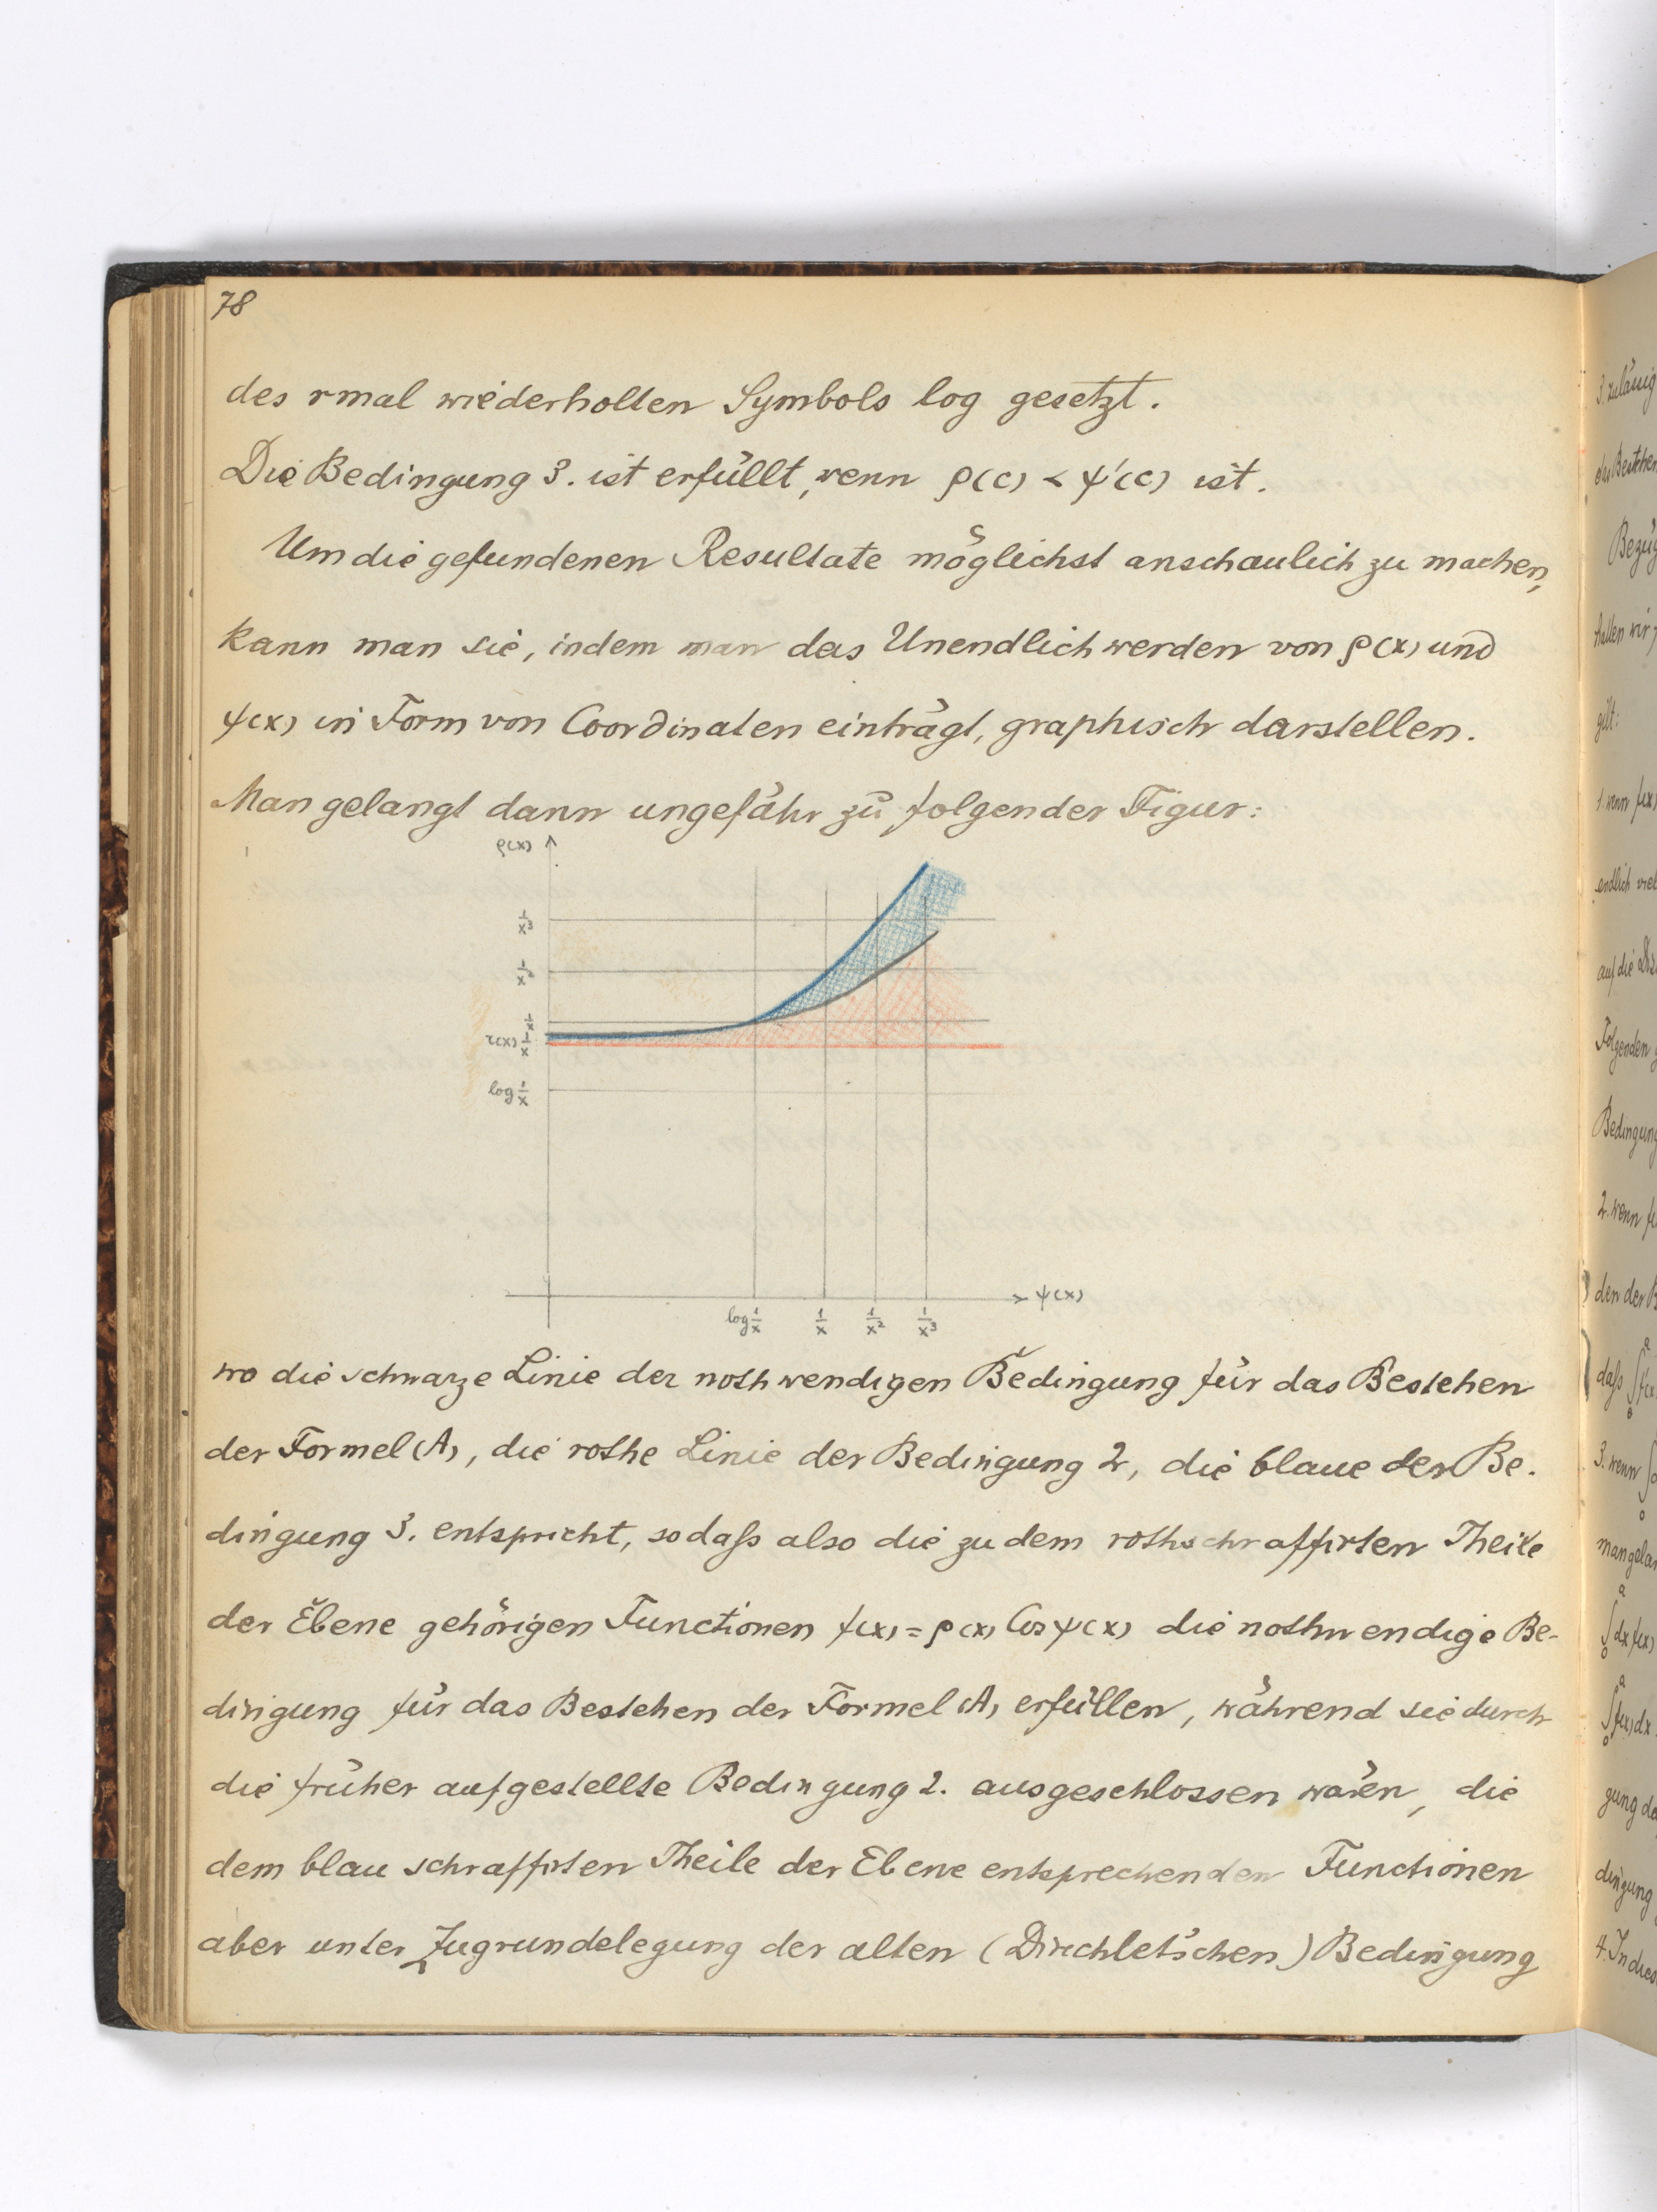 78
des rmal wiederholten Symbols log gesetzt.
Die Bedingung 3. ist erfüllt, wenn ρ(c) < ψ'(c) ist.
Um die gefundenen Resultate möglichst anschaulich zu machen,
kann man sie, indem man das Unendlichwerden von ρ(x) und
ψ(x) in Form von Coordinaten einträgt, graphisch darstellen.
Man gelangt dann ungefähr zu folgender Figur:
ρ(x)
1/x³
1/x²
1/x
τ(x) 1/x
log 1/x
ψ(x)
log 1/x 1/x 1/x² 1/x³
wo die schwarze Linie der nothwendigen Bedingung für das Bestehen
der Formel (A), die rothe Linie der Bedingung 2, die blaue der Be-
dingung 3. entspricht, sodaß also die zu dem rothschraffirten Theile
der Ebene gehörigen Functionen f(x) = ρ(x) Cos ψ(x) die nothwendige Be-
dingung für das Bestehen der Formel (A) erfüllen, während sie durch
die früher aufgestellte Bedingung 2. ausgeschlossen wären, die
dem blau schraffirten Theile der Ebene entsprechenden Functionen
aber unter Zugrundelegung der alten (Dirichlet'schen) Bedingung
3. zuläßig
des Bestehen
Bezüg
gilt:
1. wenn f(x)
endlich viel
auf die
Folgenden
Bedingung
2. wenn
den der B
daß
3. wenn
∫dx f(x)
∫f(x)dx
gung de
dingung
4. In dies